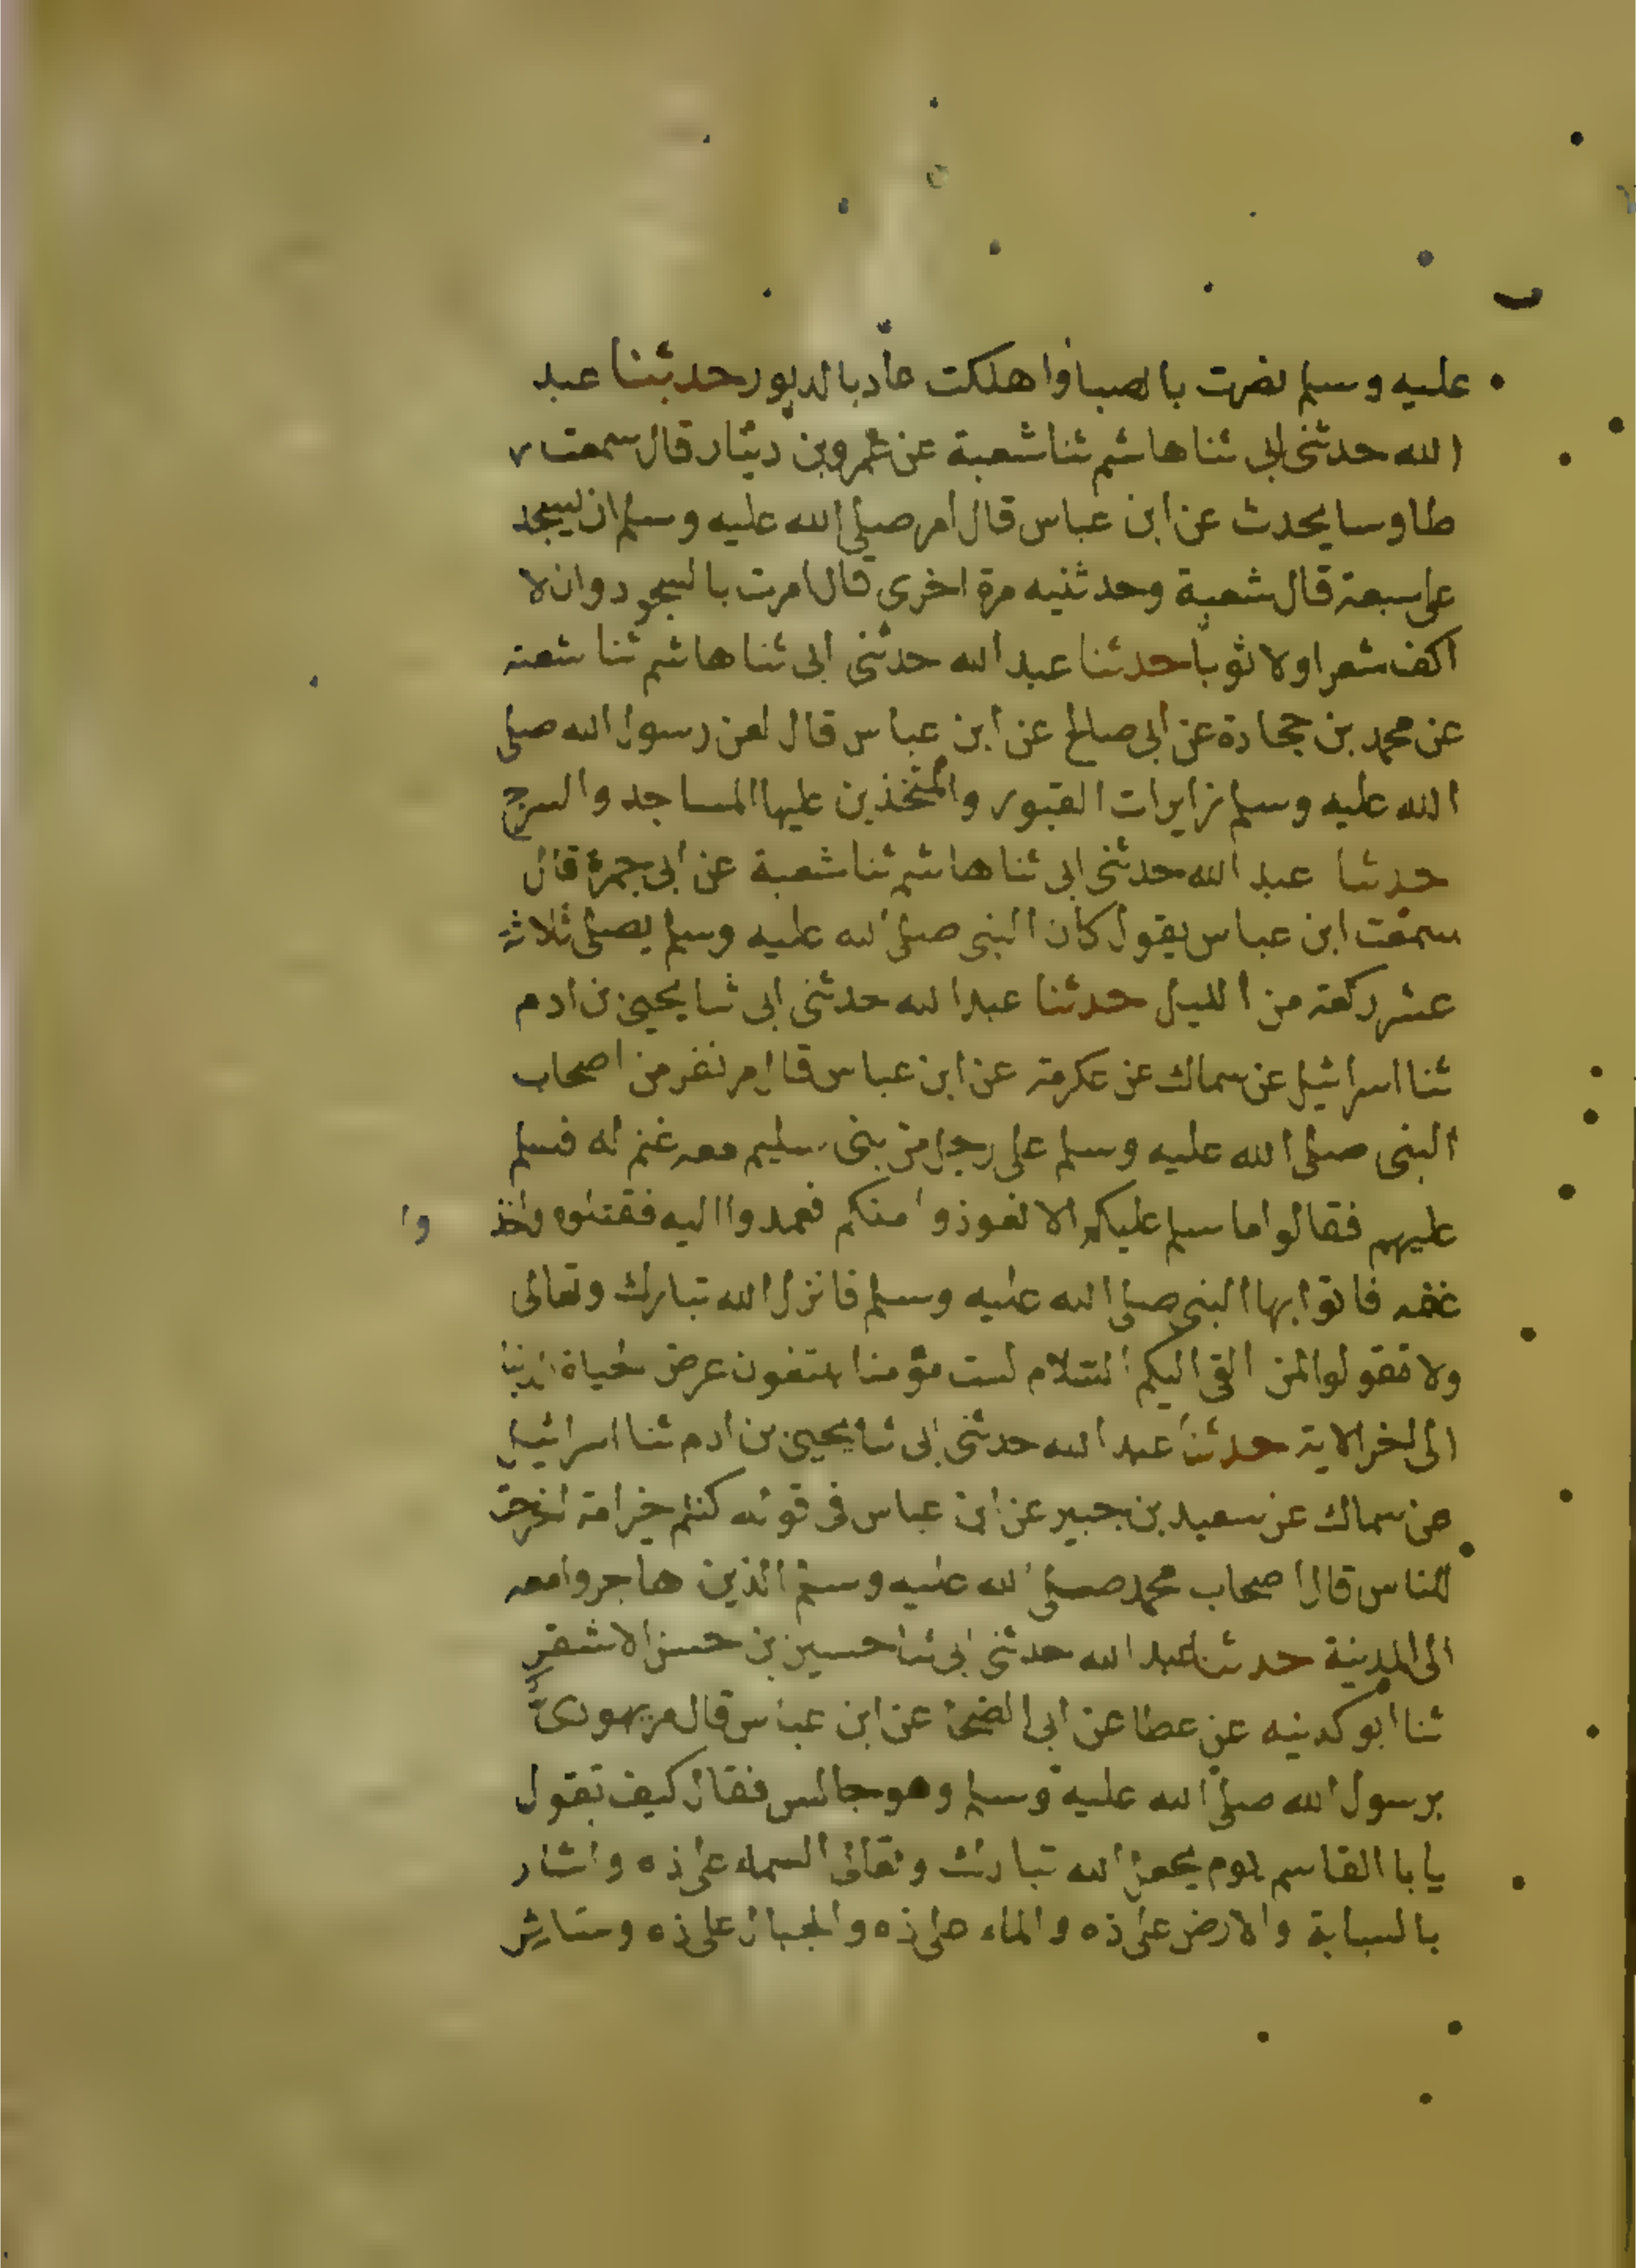 عليه وسلم نصرت بالصبا واهلكت عاد بالدبور حدثنا عبد
الله حدثنى ابى ثنا هاشم ثنا شعبة عن عمرو بن دينار قال سمعت
طاوسا يحدث عن ابن عباس قال امر صلى الله عليه وسلم ان يسجد
على سبعة قال شعبة وحدثنيه مرة اخرى قال امرت بالسجود وان لا
اكف شعرا ولا ثوبا حدثنا عبد الله حدثنى ابى ثنا هاشم ثنا شعبة
عن محمد بن جحادة عن ابى صالح عن ابن عباس قال لعن رسول الله صلى
الله عليه وسلم زايرات القبور والمتخذين عليها المساجد والسرج
حدثنا عبد الله حدثنى ابى ثنا هاشم ثنا شعبة عن ابى جمرة قال
سمعت ابن عباس يقول كان النبى صلى الله عليه وسلم يصلى ثلاثة
عشر ركعة من الليل حدثنا عبد الله حدثنى ابى ثنا يحيى بن ادم
ثنا اسرائيل عن سماك عن عكرمة عن ابن عباس قال مر نفر من اصحاب
النبى صلى الله عليه وسلم على رجل من بنى سليم معه غنم له فسلم
عليهم فقالوا ما سلم عليكم الا لعوذوا منكم فعمدوا اليه فقتلوه واخذ وا
غنمه فاتوا بها النبى صلى الله عليه وسلم فانزل الله تبارك وتعالى
ولا تقولوا لمن القى اليكم السلام لست مؤمنا تبتغون عرض الحياة الدنيا
الى اخر الاية حدثنا عبد الله حدثنى ابى ثنا يحيى بن ادم ثنا اسرائيل
عن سماك عن سعيد بن جبير عن ابن عباس فى قوله كنتم خير امة اخرجت
للناس قال اصحاب محمد صلى الله عليه وسلم الذين هاجروا معه
الى المدينة حدثنا عبد الله حدثنى ابى ثنا حسين بن حسن الاشقر
ثنا ابو كدينه عن عطا عن ابى الضحى عن ابن عباس قال مر يهودى
برسول الله صلى الله عليه وسلم وهو جالس فقال كيف تقول
يا با القاسم يوم يجعل الله تبارك وتعالى السماء على ذه واشار
بالسبابة والارض على ذه والماء على ذه والجبال على ذه وسائر